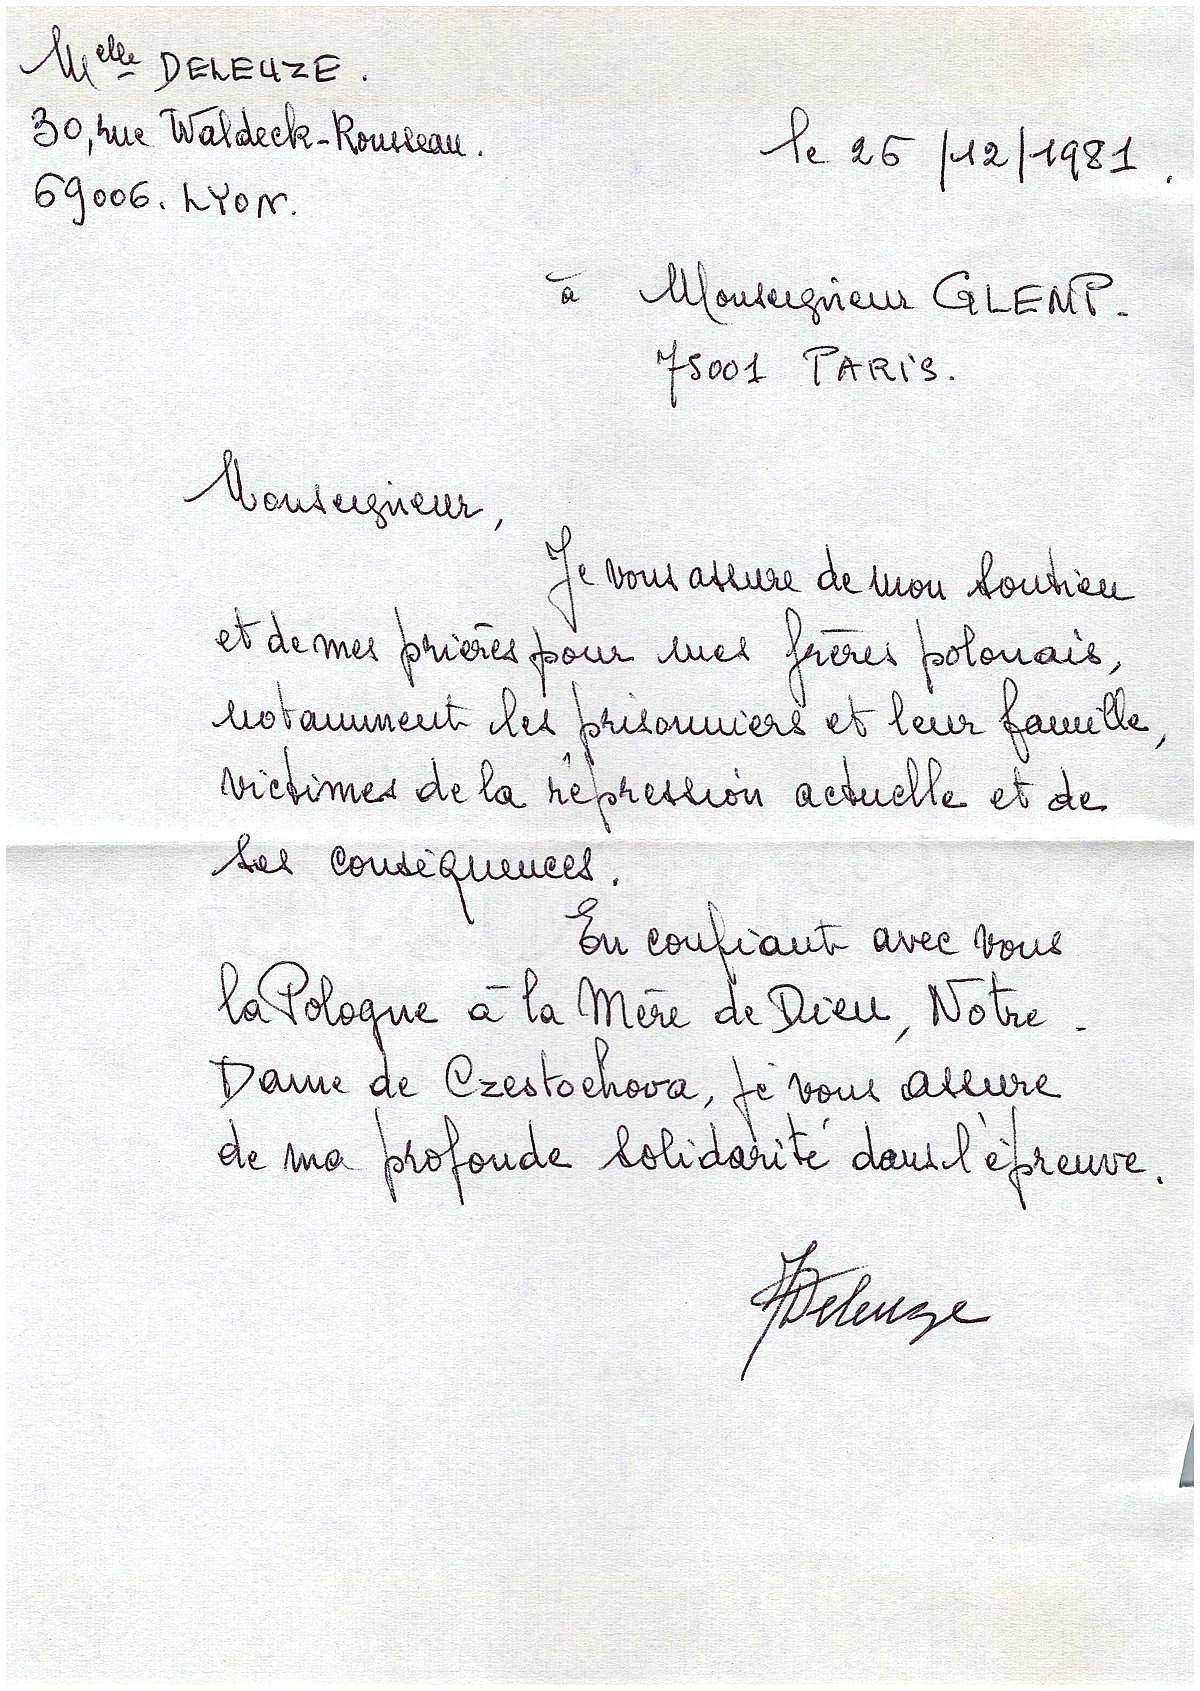 Melle DELEUZE.
30, rue Waldeck-Rousseau.
69006. LYON.
le 26/12/1981.
à Monseigneur GLEMP.
75001 PARIS.
Monseigneur,
Je vous assure de mon soutien
et de mes prières pour mes frères polonais,
notamment les prisonniers et leur famille,
victimes de la répression actuelle et de
ses conséquences.
En confiant avec vous
la Pologne à la Mère de Dieu, Notre-
Dame de Czestochova, je vous assure
de ma profonde solidarité dans l'épreuve.
Deleuze